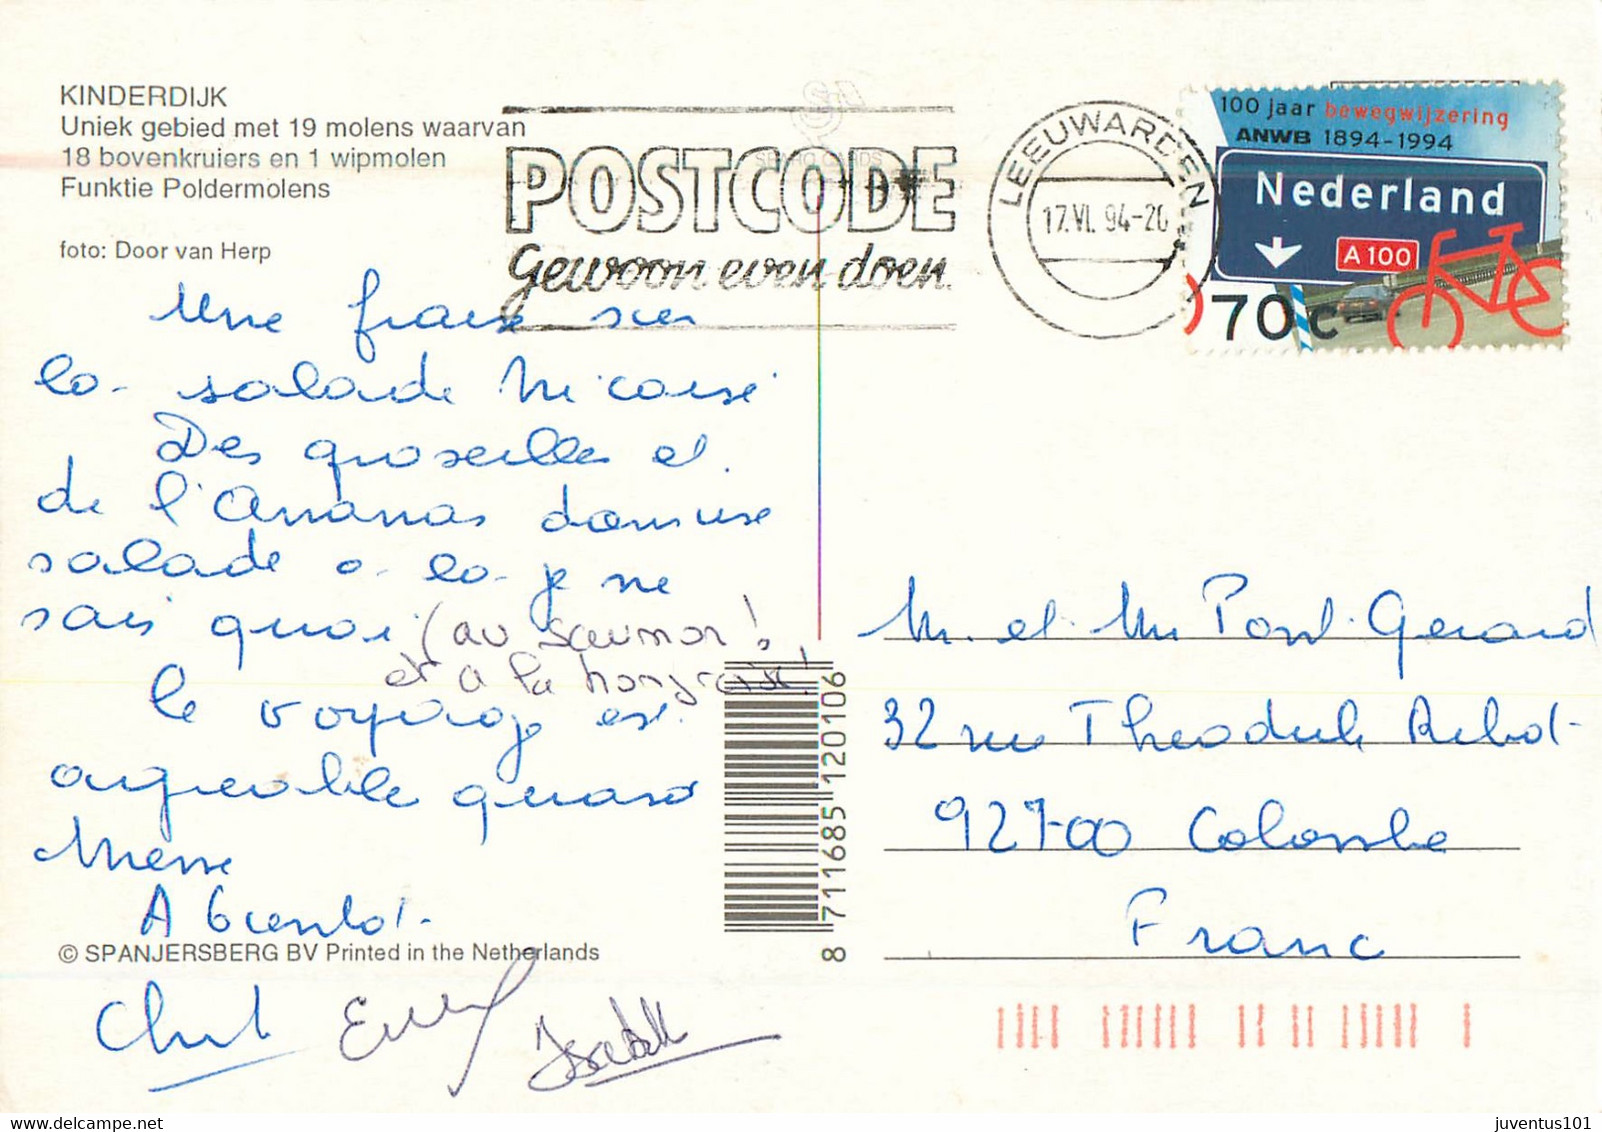 KINDERDIJK
Uniek gebied met 19 molens waarvan
18 bovenkruiers en 1 wipmolen
Funktie Poldermolens
foto: Door van Herp
POSTCODE
Gewoon even doen.
LEEUWARDEN
17.VI. 94-20
100 jaar bewegwijzering
ANWB 1894-1994
Nederland
A 100
70 c
Une fraise sur
la salade Nicoise
Des groseilles et
de l'Ananas dans une
salade a la je ne
sais quoi (au saumon!
et à la hongroise!
le voyage est
agreable quand
Meme
A bientot
© SPANJERSBERG BV Printed in the Netherlands
Isabelle
8 711685 120106
M. et Mme Pont. Gerard
32 rue Theodule Ribot
92700 Colombe
Franc
juventus101